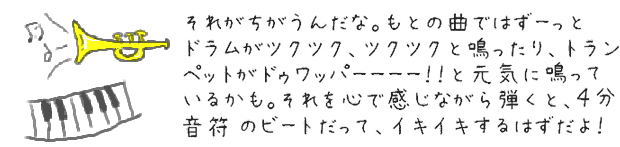 それがちがうんだな。もとの曲ではずーっと
ドラムがツクツク、ツクツクと鳴ったり、トラン
ペットがドゥワッパーーーー!!と元気に鳴って
いるかも。それを心で感じながら弾くと、4分
音符 のビートだって、イキイキするはずだよ!